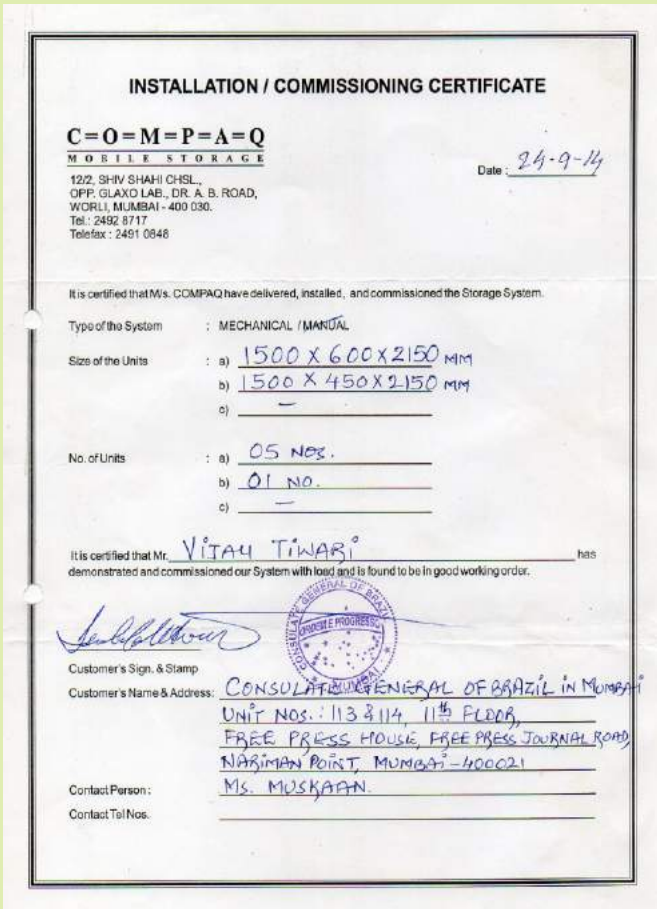 INSTALLATION / COMMISSIONING CERTIFICATE
C=O=M=P=A=Q
MOBILE STORAGE
Date : 24-9-14
12/2, SHIV SHAHI CHSL.,
OPP. GLAXO LAB., DR. A. B. ROAD,
WORLI, MUMBAI - 400 030.
Tel.: 2492 8717
Telefax : 2491 0848
It is certified that M/s. COMPAQ have delivered, installed, and commissioned the Storage System.
Type of the System : MECHANICAL / MANUAL
Size of the Units : a) 1500 X 600 X 2150 MM
b) 1500 X 450 X 2150 MM
c) —
No. of Units : a) 05 NOS.
b) 01 NO.
c) —
It is certified that Mr. VIJAY TIWARI has
demonstrated and commissioned our System with load and is found to be in good working order.
CONSULATE GENERAL OF BRAZIL
ORDEM E PROGRESSO
MUMBAI
Customer's Sign. & Stamp
Customer's Name & Address: CONSULATE GENERAL OF BRAZIL IN MUMBAI
UNIT NOS.: 113 & 114, 11th FLOOR,
FREE PRESS HOUSE, FREE PRESS JOURNAL ROAD,
NARIMAN POINT, MUMBAI - 400021
Contact Person : MS. MUSKAAN.
Contact Tel Nos.